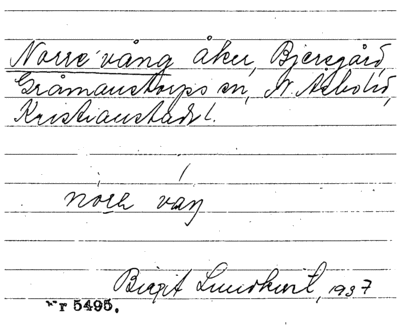 Norre vång åker, Bjersgård,
Gråmanstorps sn, N. Åsbo hd,
Kristianstads l.
nǫrɛ váŋ
Birgit Lundkvist, 1937
Nr 5495.